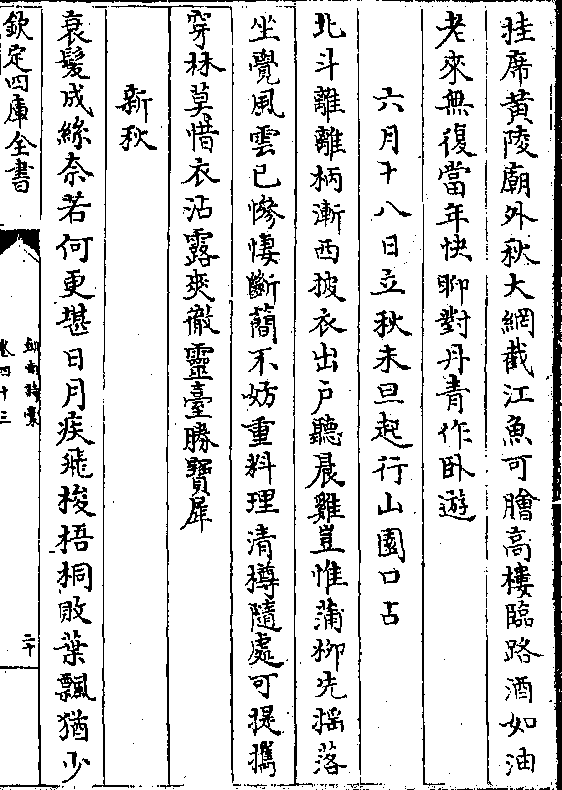 挂席黄陵廟外秋大網截江魚可膾高樓臨路酒如油
老來無復當年快聊對丹青作卧遊
六月十八日立秋未旦起行山園口占
北斗離離柄漸西披衣出户聽晨雞豈惟蒲柳先揺落
坐覺風雲已慘悽斷蕳不妨重料理清樽隨處可提攜
穿林莫惜衣沾露爽徹靈臺勝寳犀
新秋
衰髮成絲奈若何更堪日月疾飛梭梧桐敗葉飄猶少
欽定四庫全書
劍南詩槀
卷四十三
二十